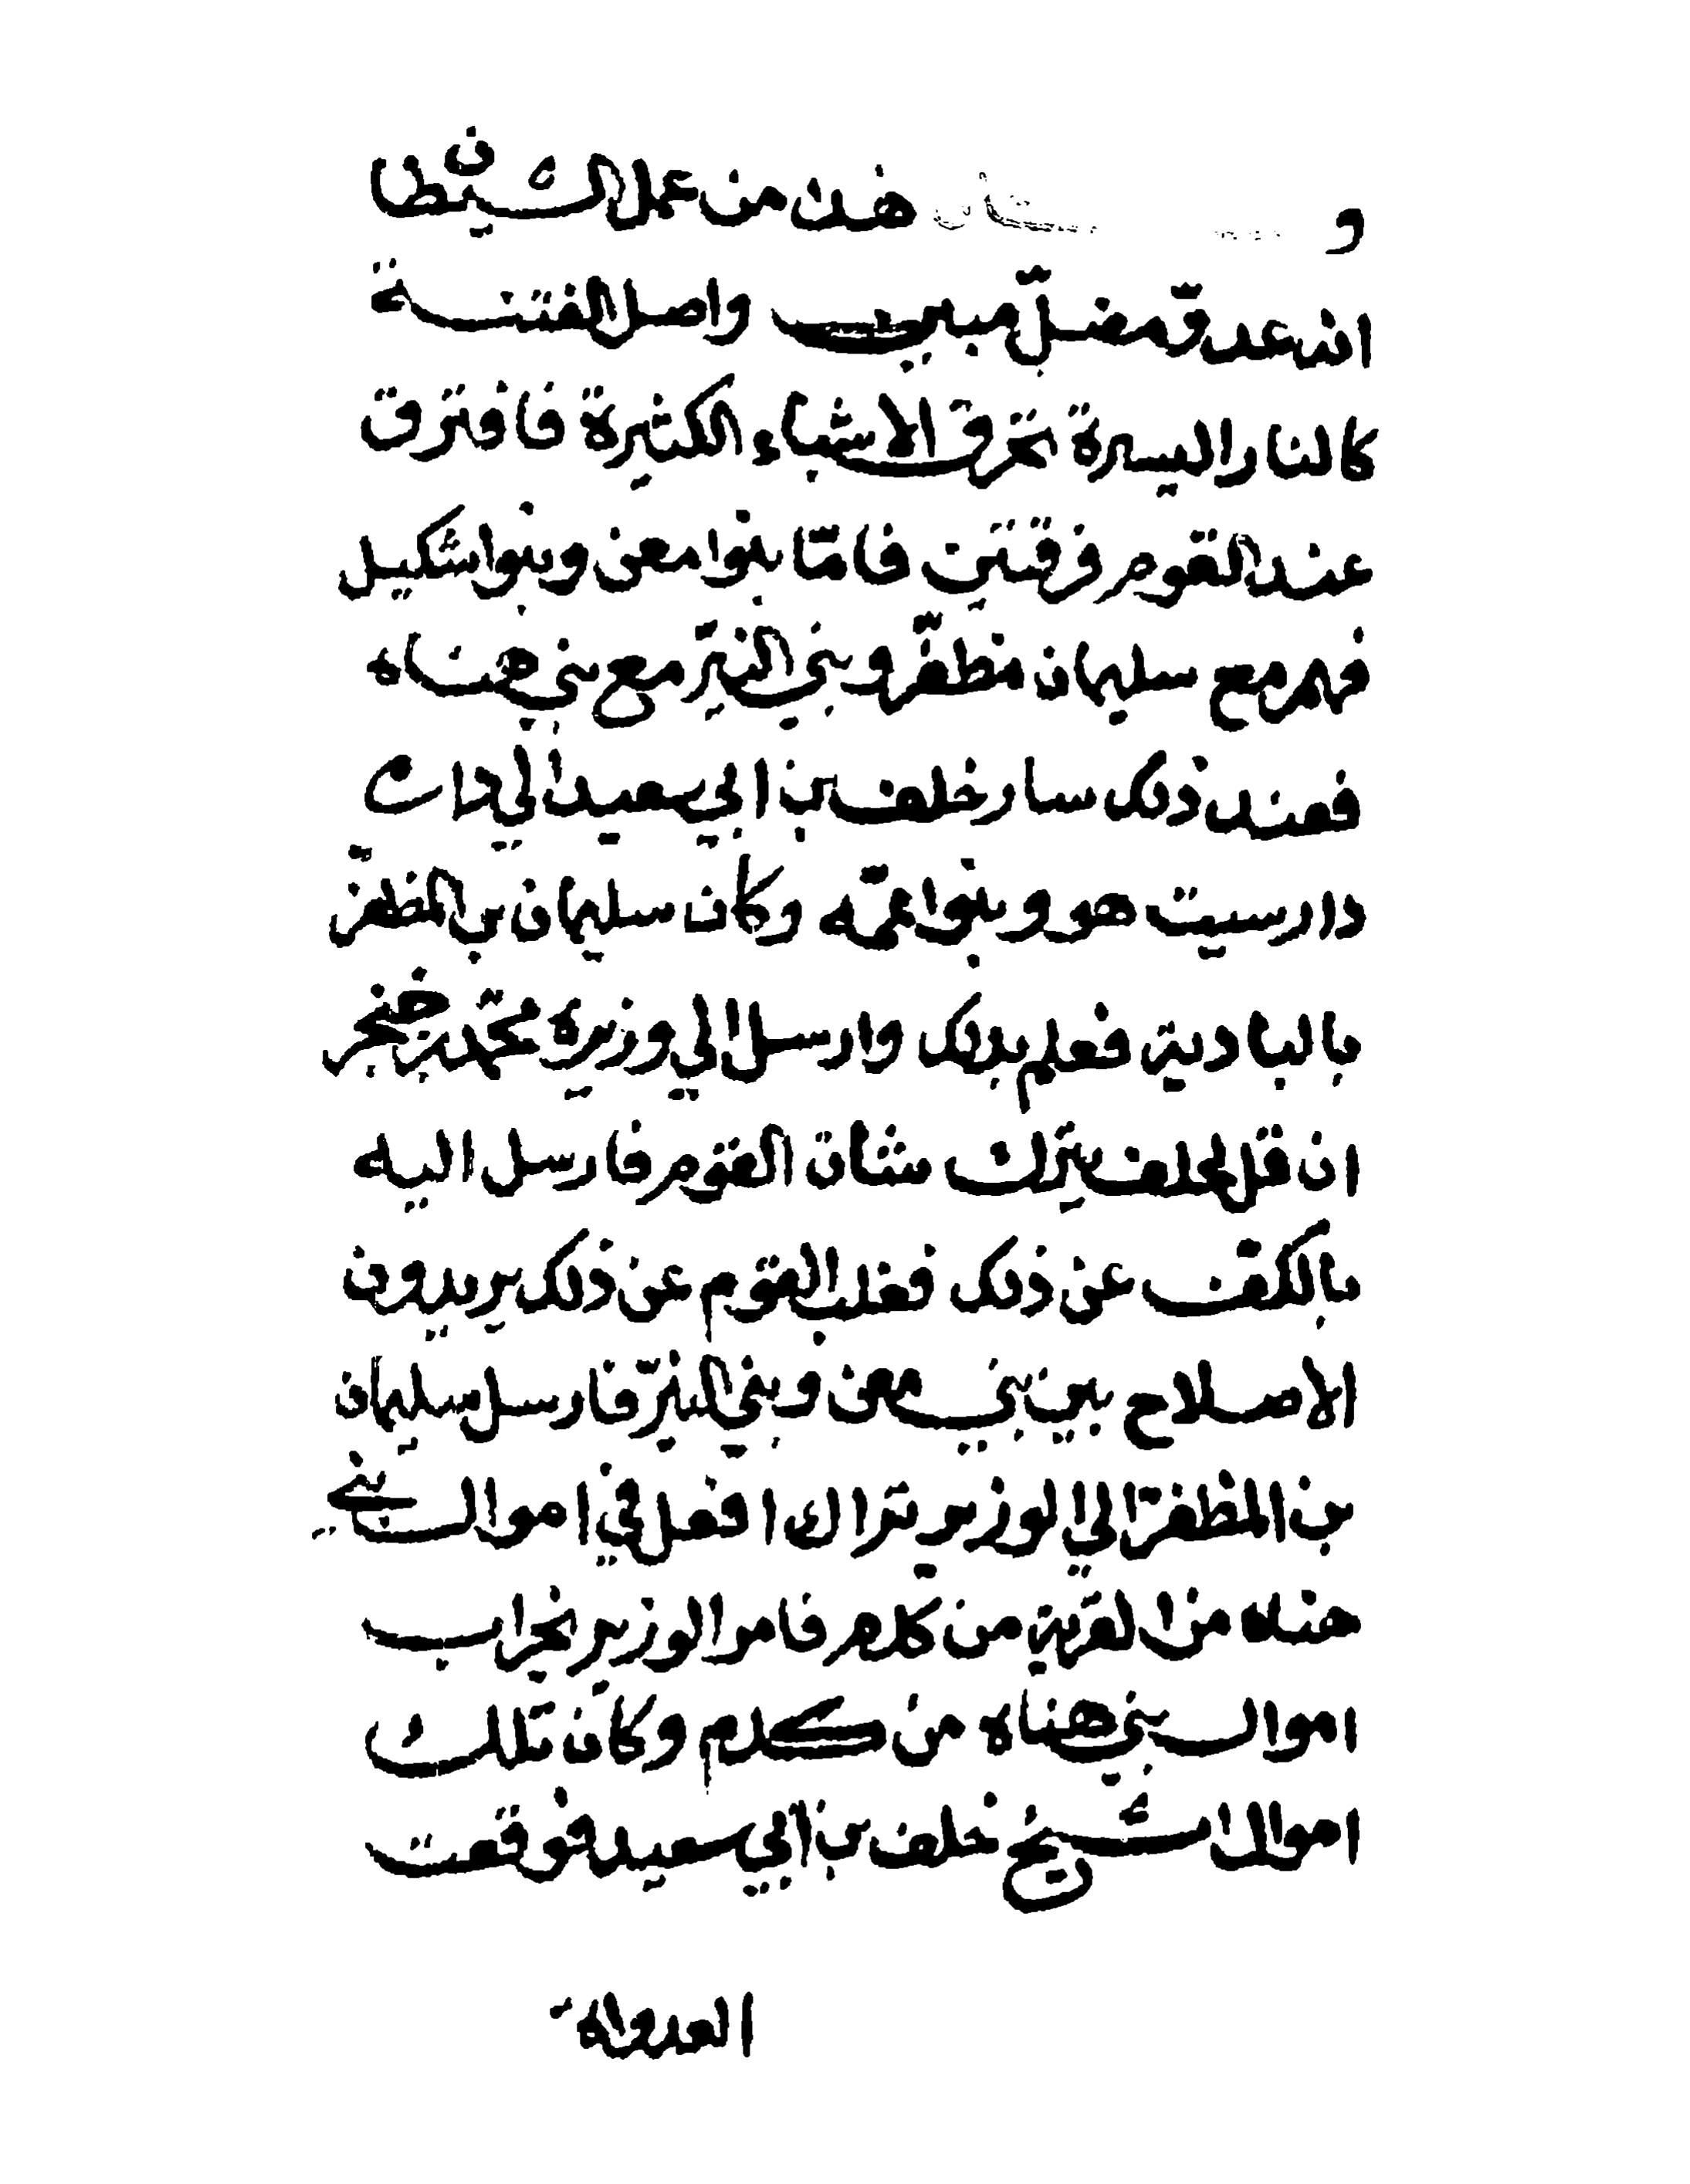 و هذا من عمل الشيطان
انه عدوّ مضلّ مبين واصل الفتنــة
كالنار اليسيرة تحرق الاشياء الكثيرة فافترق
عند القوم فرقتين فامّا بنوا معن وبنوا شكيل
فهم مع سليمان مظفّر وبني النيّر مع بني هناه
فعند ذلك سار خلف بن ابي سعيد الي
دارسيت هو وبنوا عمّه وكان سليمان بن المظفّر
بالبادية فعلم بذلك وارسل الي وزيره محمّد بن خنجر
ان قل لخلف يترك شان القوم فارسل اليه
بالكفّ عن ذلك القوم عن ذلك يريدون
الاصلاح بين بني معن وبني النيّر فارسل سليمان
بن المظفّر الي الوزير افعل في اموال بني
هناه من القرية من كدم فامر الوزير بخراب
اموال بني هناه من كدم وكان تلك
اموال الشيخ خلف بن ابي سعيد فوقعت
العداوة